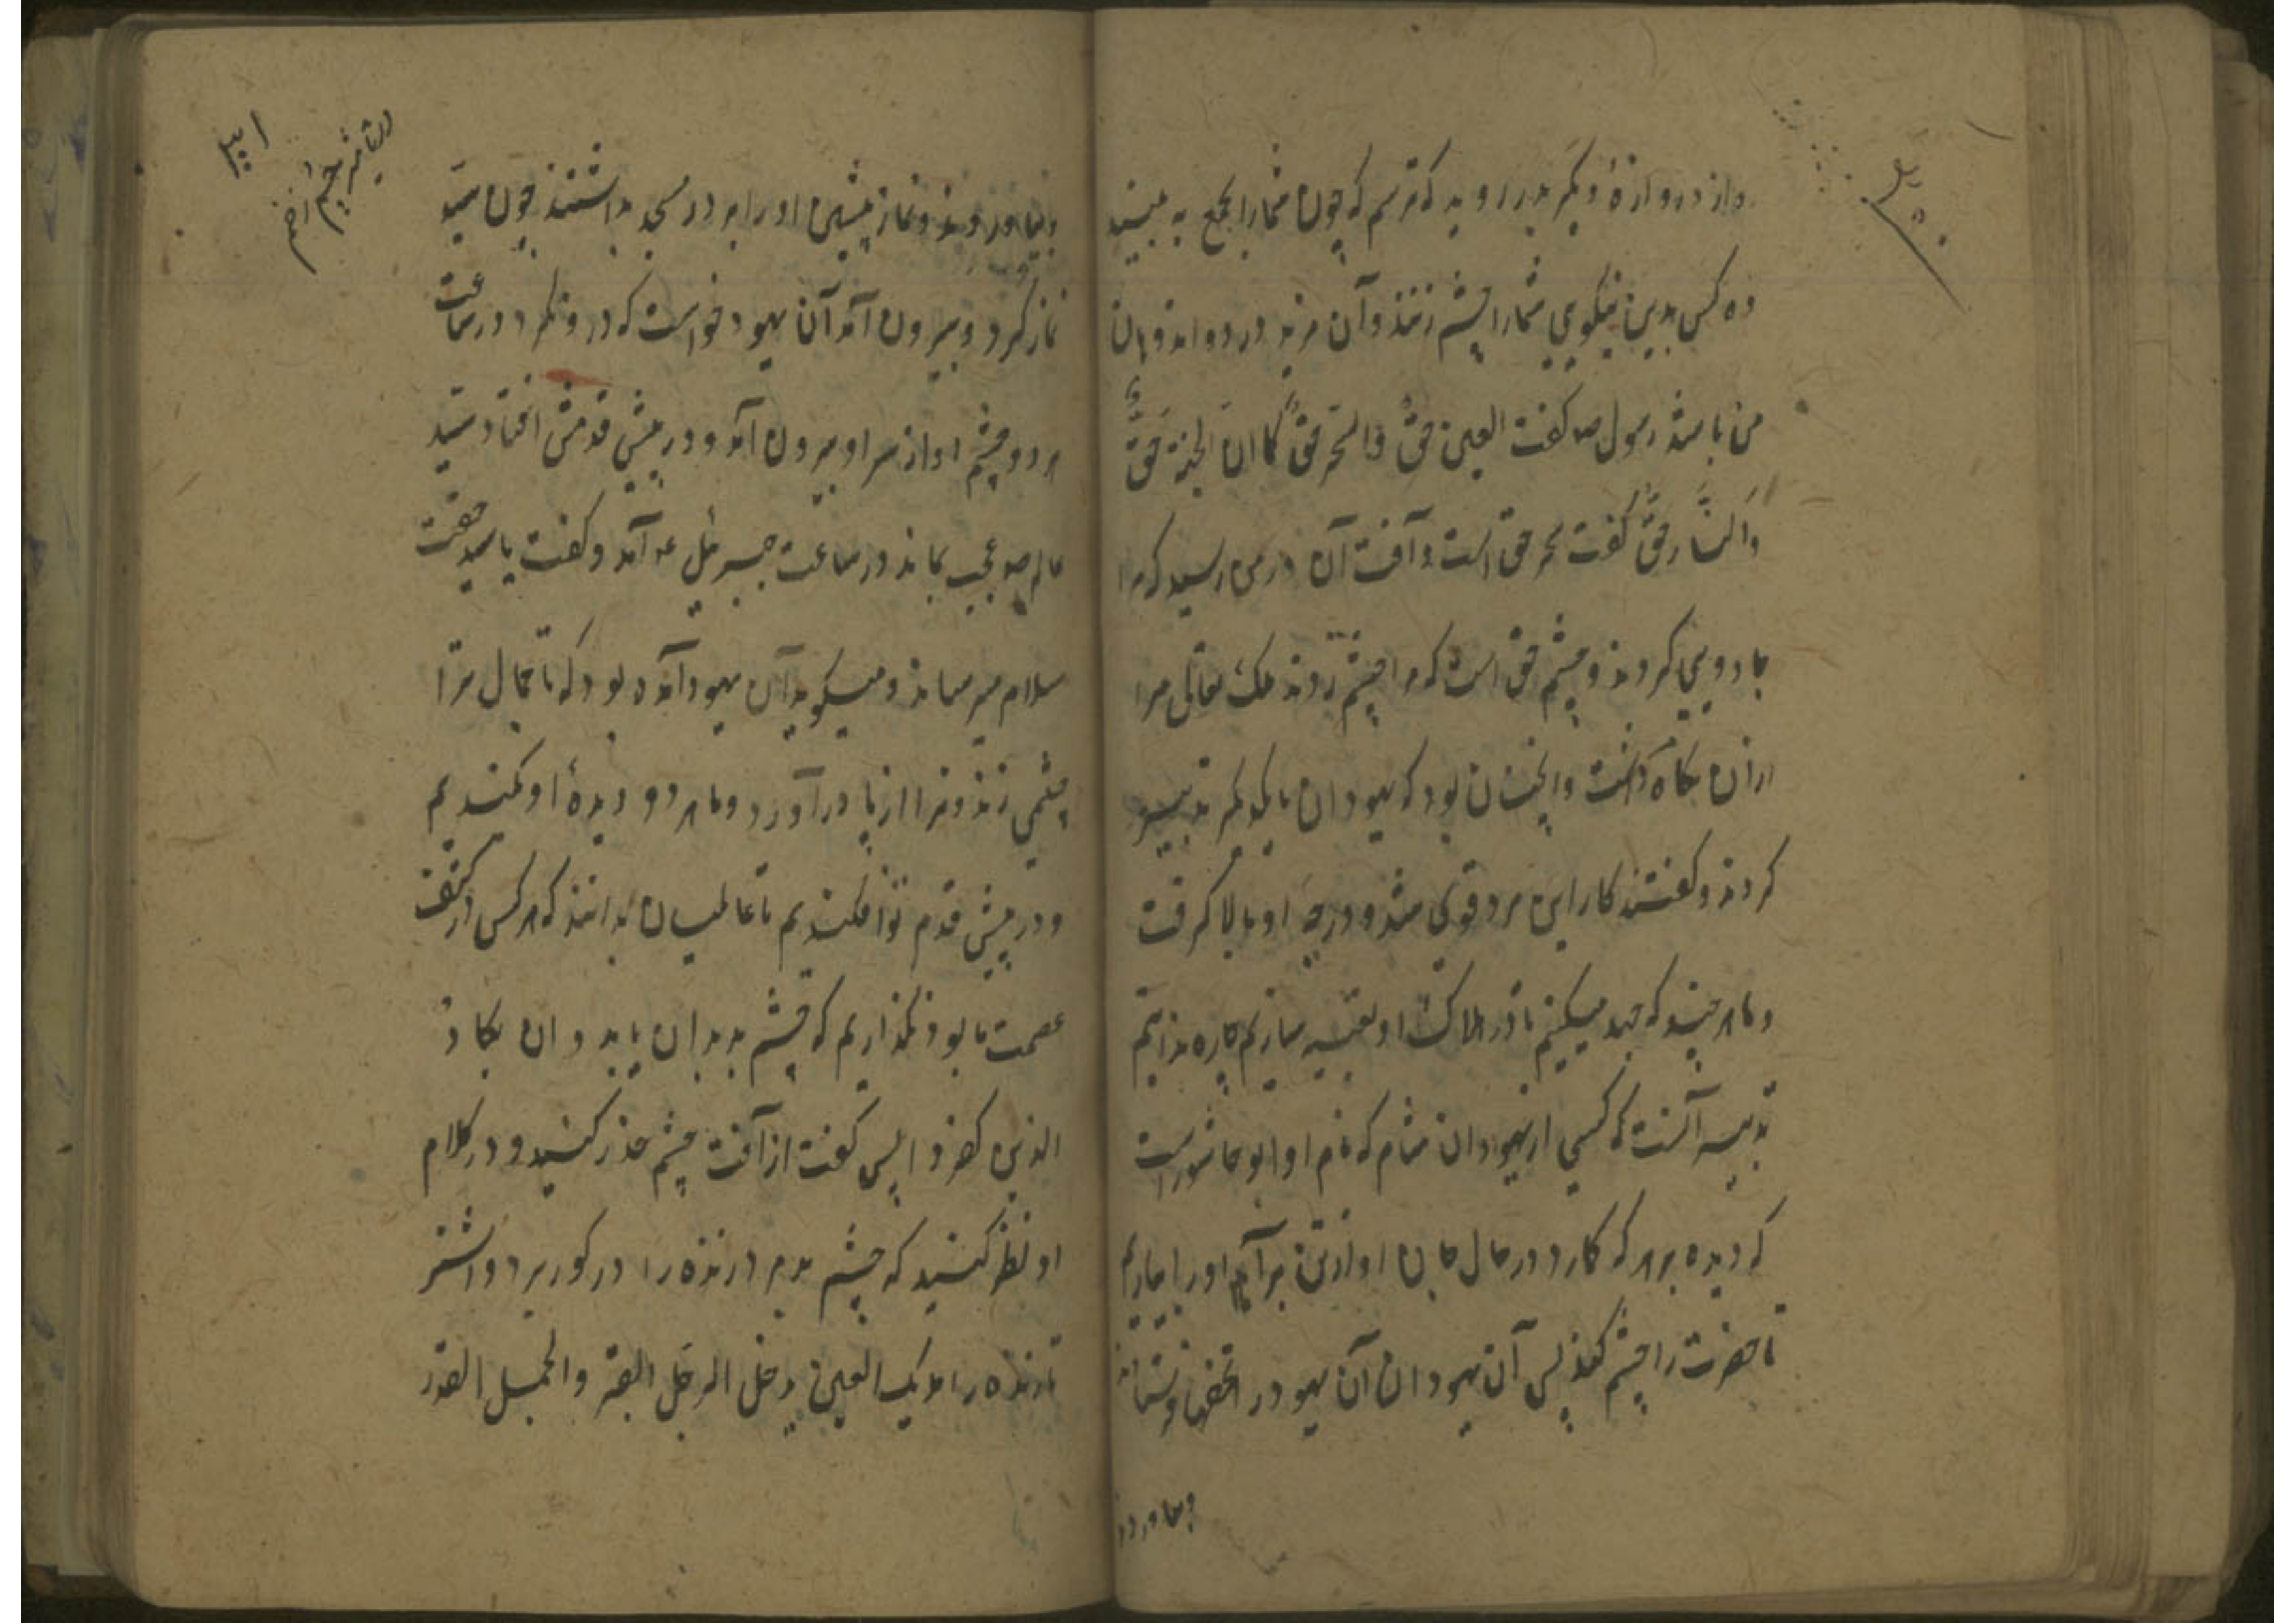 واز دروازهٔ دیگر بدر روید که ترسم که چون شما را بجمع به بینند
ده کس بدین نیکویی شما را چشم زنند و آن مزید درد و اندوهان
من باشد رسول صه کفت العین حقٌ والسحر حقٌ کما ان الجنة حقٌ
والنار حقٌ کفت سحر حق است و آفت آن در من رسید که مرا
جادویی کردند و چشم حق است که مرا چشم زدند ملک تعالی مرا
ازان نکاه داشت وانچنان بود که یهودان با یکدیکر تدبیر
کردند و کفتند کار این مرد قوی شد و درجهٔ او بالا کرفت
و ما هر چند که جهد میکنیم تا در هلاک او تعبیه سازیم چاره ندانیم
تدبیر آنست که کسی از یهودان شام که نام او ابو عاشور است
که دیده بر هر که کارد در حال جان او از تن برآید او را بیاریم
تا حضرت را چشم کند پس آن یهودان آن یهود را نخفی فرستادند
وبیاوردند
۳۰۱
در تاثیر چشم زخم
وبیاوردند و نماز پیشین او را بر در مسجد بداشتند چون سید
نماز کرد و بیرون آمد آن یهود خواست که درو نکرد در ساعت
هر دو چشم او از سر او بیرون آمد و در پیش قدمش افتاد سید
عالم صه عجب بماند در ساعت جبرئیل عه آمد و کفت یا سید حقت
سلام میرساند و میکوید آن یهود آمده بود که تا جمال ترا
چشمی زند و ترا از پا درآورد و ما هر دو دیدهٔ او کندیم
و در پیش قدم تو افکندیم تا عالمیان بدانند که هر کس در کنف
عصمت ما بود نکذاریم که چشم بد بدان یابد و ان یکاد
الذین کفروا پس کفت از آفت چشم حذر کنید و در کلام
او نظر کنید که چشم بد مر درنده را در کور برد و اشتر
درنده را بدیک العین یدخل الرجل القبر والجمل القدر